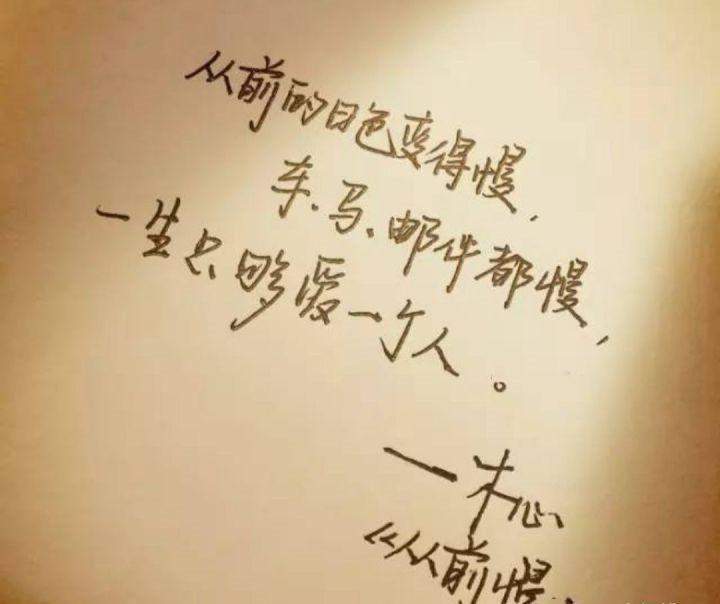 从前的日色变得慢，
车、马、邮件都慢，
一生只够爱一个人。
—木心
《从前慢